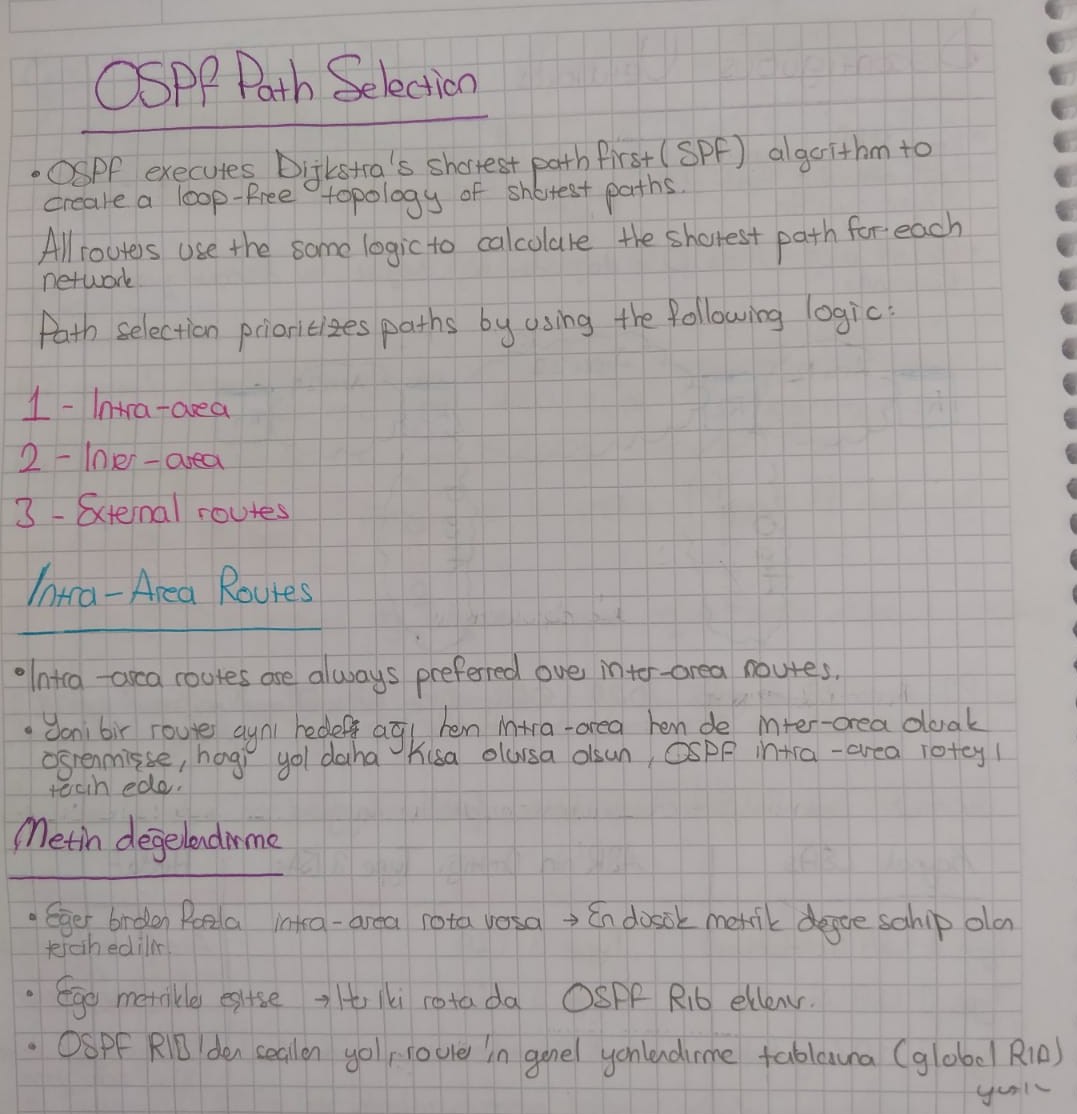 OSPF Path Selection
• OSPF executes Dijkstra's shortest path first (SPF) algorithm to
create a loop-free topology of shotest paths.
All routers use the same logic to calculate the shortest path for each
network
Path selection prioritizes paths by using the following logic:
1 - Intra-area
2 - Inter-area
3 - External routes
Intra-Area Routes
• Intra-area routes are always preferred over inter-area routes.
• Yani bir router aynı hedef ağı hem intra-area hem de inter-area olarak
öğrenmişse, hagi yol daha kısa olursa olsun, OSPF intra-area rotayı
tercih eder.
Metin değelendirme
• Eğer birden fazla intra-area rota varsa → En düşük metrik değere sahip olan
tercih edilir
• Eğer metrikler eşitse → Her iki rota da OSPF RIB eklenir.
• OSPF RIB'den seçilen yol, router'in genel yönlendirme tablosuna (global RIB)